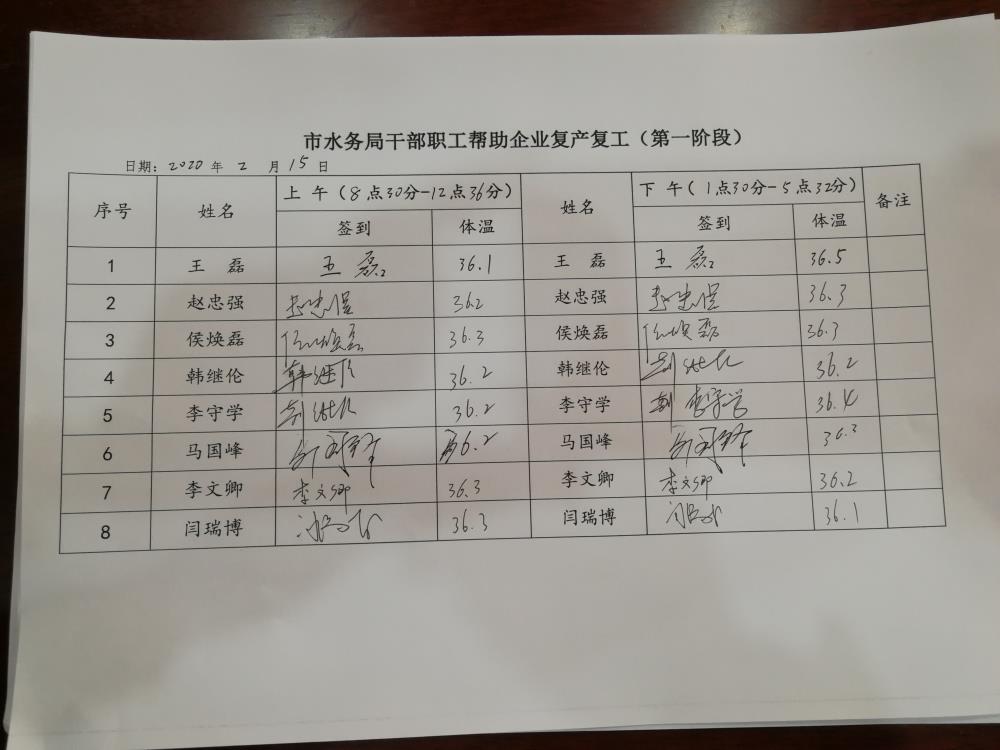 市水务局干部职工帮助企业复产复工（第一阶段）
日期：2020 年 2 月 15 日
序号 姓名 上 午（8点30分-12点36分） 姓名 下 午（1点30分-5点32分） 备注
签到 体温 签到 体温
1 王 磊 王 磊 36.1 王 磊 王 磊 36.5
2 赵忠强 赵忠强 36.2 赵忠强 赵忠强 36.3
3 侯焕磊 侯焕磊 36.3 侯焕磊 侯焕磊 36.3
4 韩继伦 韩继伦 36.2 韩继伦 36.2
5 李守学 36.2 李守学 李守学 36.4
6 马国峰 36.2 马国峰
7 李文卿 李文卿 36.3 李文卿 李文卿 36.2
8 闫瑞博 36.3 闫瑞博 36.1